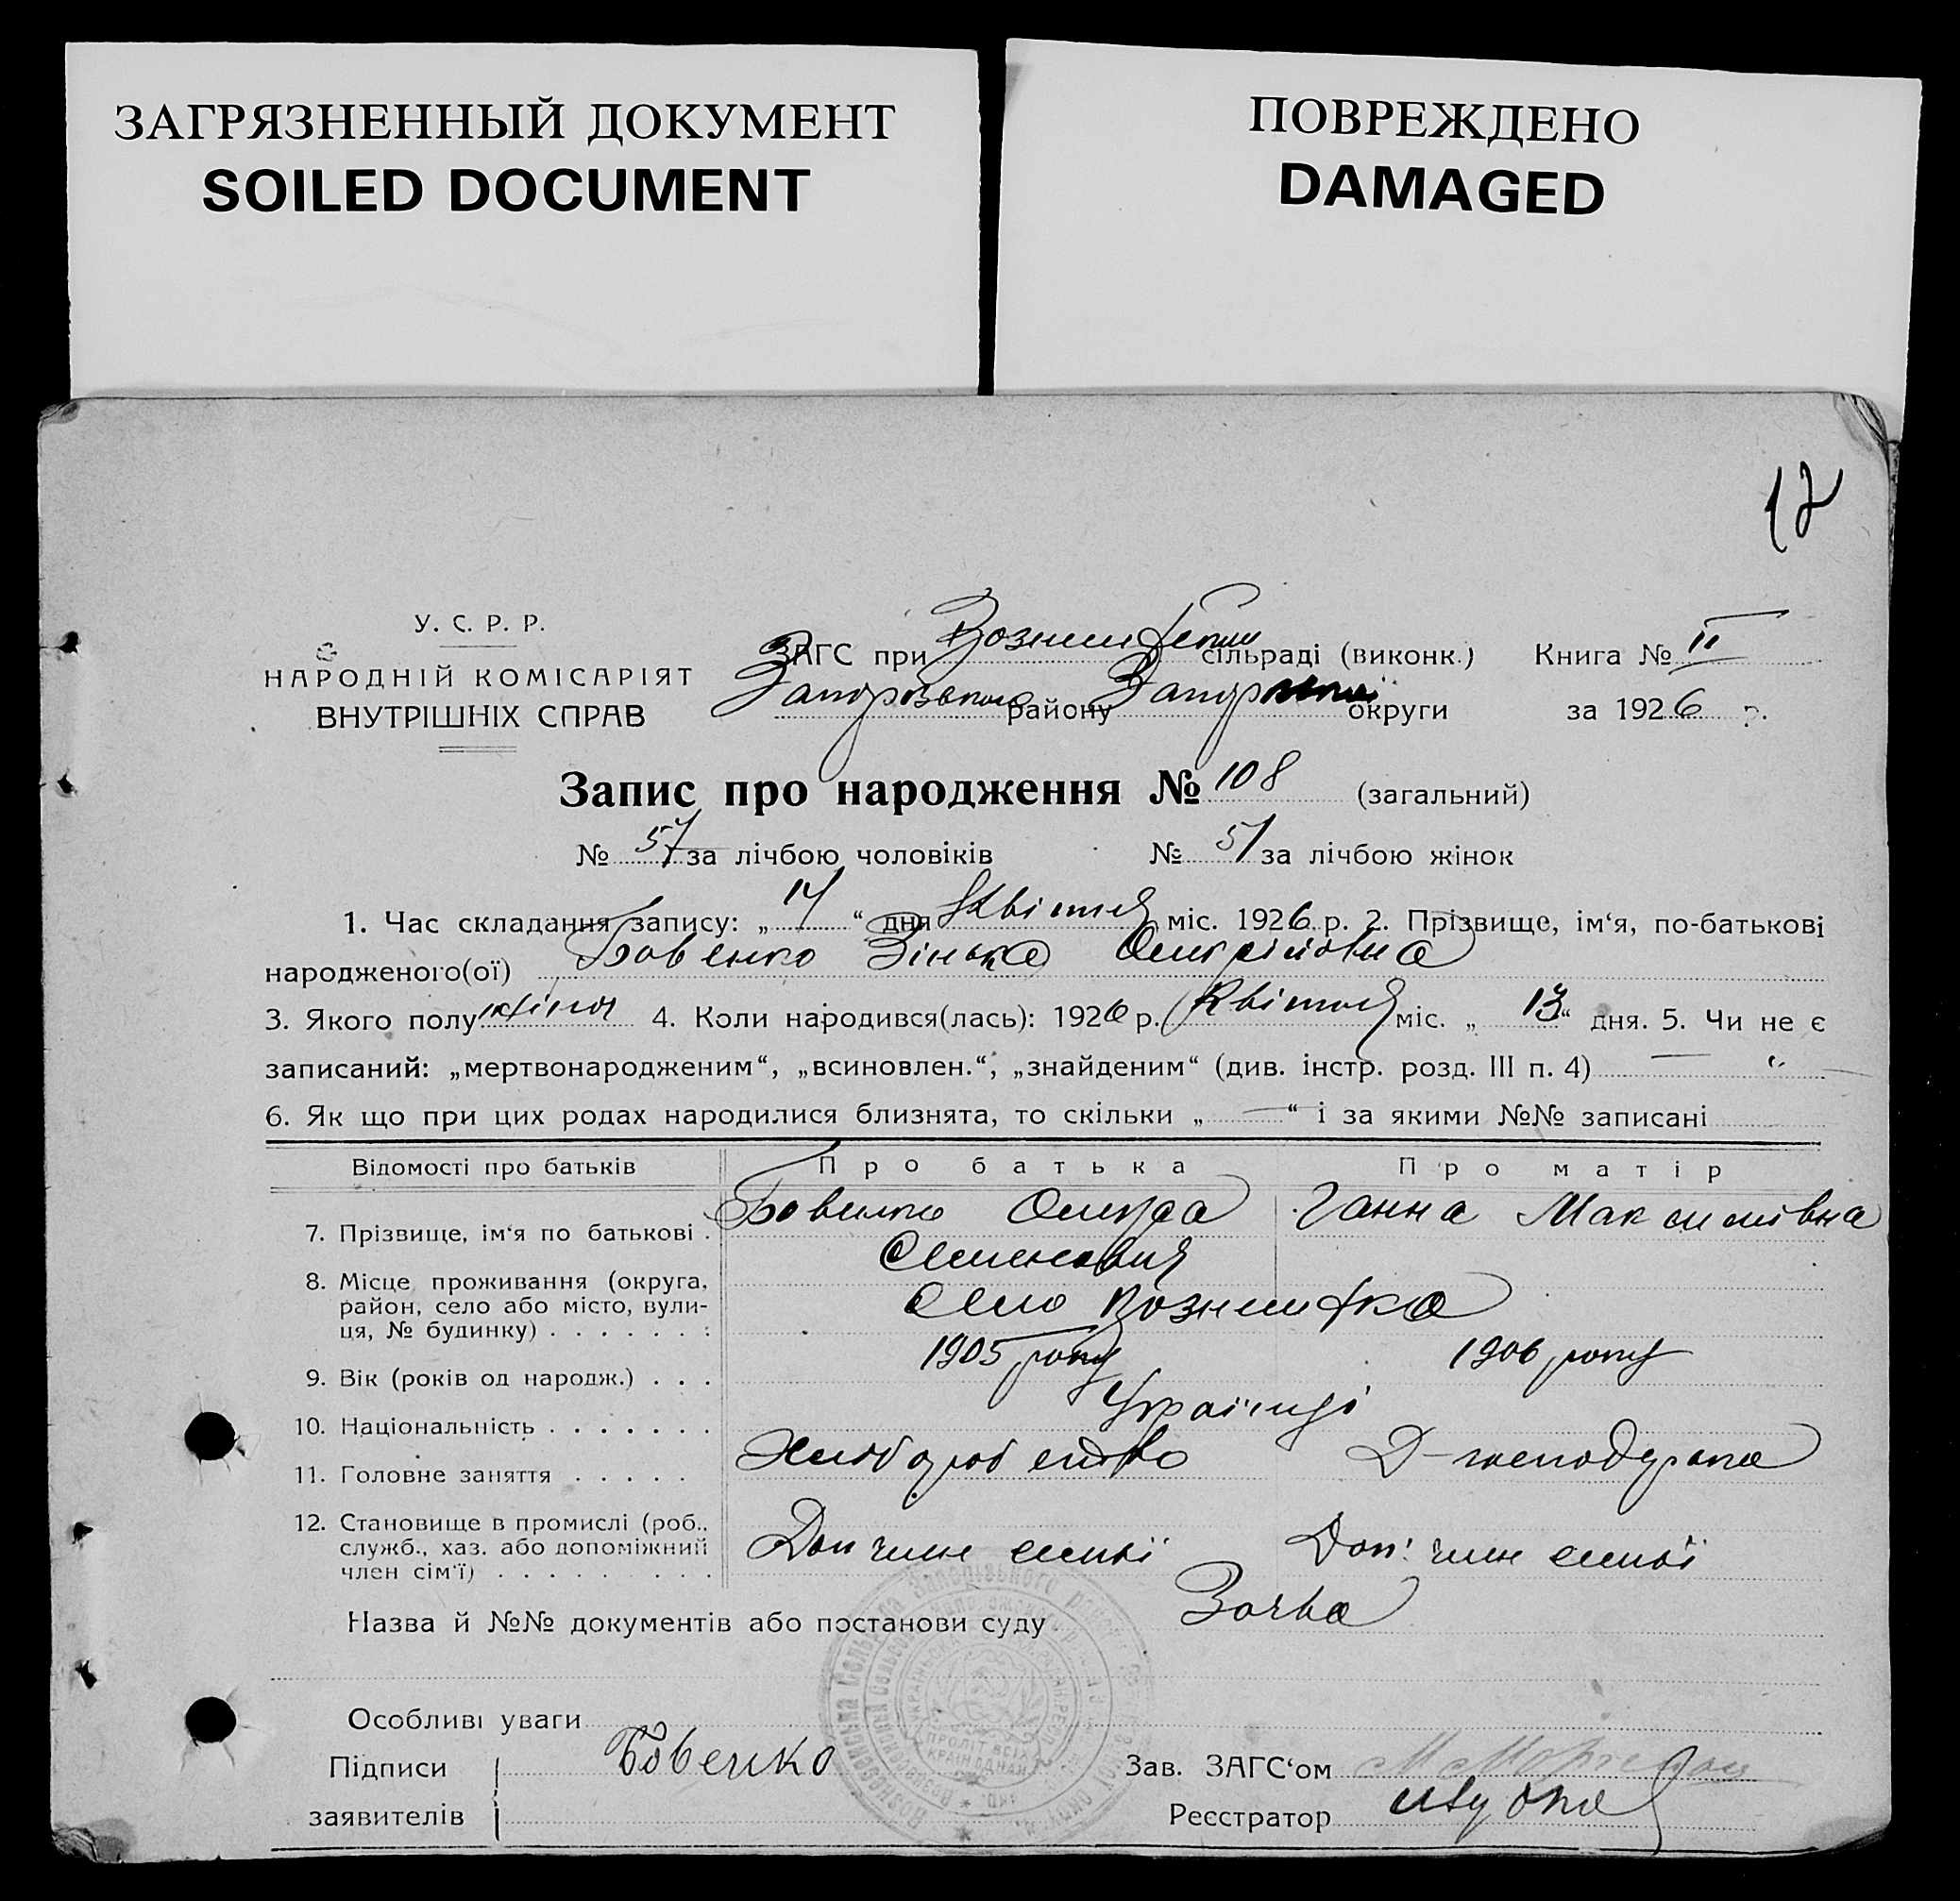 ЗАГРЯЗНЕННЫЙ ДОКУМЕНТ
SOILED DOCUMENT
ПОВРЕЖДЕНО
DAMAGED
12
У. С. Р. Р.
НАРОДНІЙ КОМІСАРІЯТ
ВНУТРІШНІХ СПРАВ
ЗАГС при сільраді (виконк.) Книга № II
району округи за 1926 р.
Запис про народження № 108 (загальний)
№ 57 за лічбою чоловіків № 51 за лічбою жінок
1. Час складання запису: „ 17 “ дня Квітня міс. 1926 р. 2. Прізвище, ім‘я, по-батькові
народженого(ої) Бовенко Зінька
3. Якого полу жіноч 4. Коли народився(лась): 1926 р. Квітня міс. „ 13 “ дня. 5. Чи не є
записаний: „мертвонародженим“, „всиновлен.“, „знайденим“ (див. інстр. розд. III п. 4) —
6. Як що при цих родах народилися близнята, то скільки „ — “ і за якими №№ записані
Відомості про батьків Про батька Про матір
7. Прізвище, ім‘я по батькові . Бовенко Ганна Максимівна
Семенович
8. Місце проживання (округа, район, село або місто, вулиця, № будинку) . . . . . . . : Село Вознесенка
9. Вік (років од народж.) . . . 1905 року 1906 року
10. Національність . . . . . . . Українці
11. Головне заняття . . . . . Хліборобство Д-господарка
12. Становище в промислі (роб., служб., хаз. або допоміжний член сім‘ї) . . . . . . . . . Доп член семьї Доп. член семьї
Назва й №№ документів або постанови суду Заява
Особливі уваги
Підписи Бовенко Зав. ЗАГС‘ом
заявителів Реєстратор